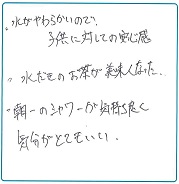 ・水がやわらかいので、
子供に対しての安心感
・水だものお茶が美味くなった。
・朝一のシャワーが気持ち良く
気分がとてもいい。